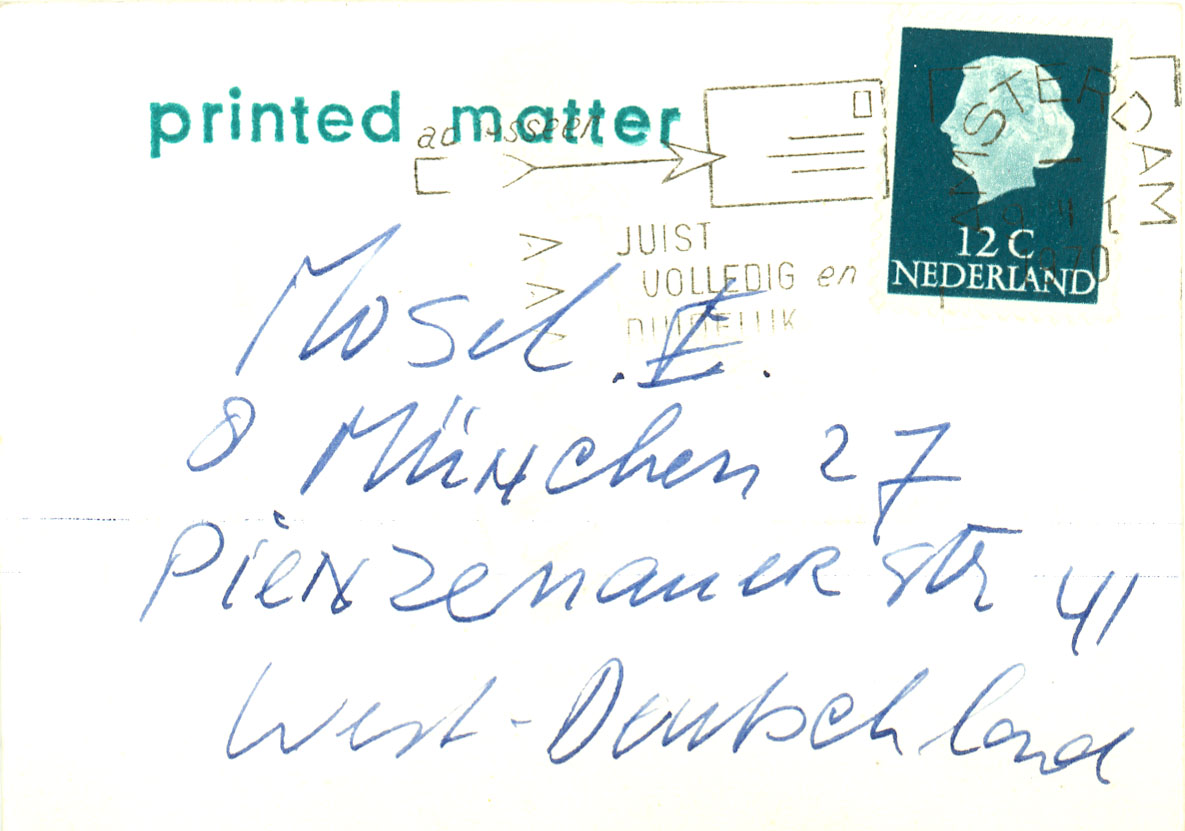 printed matter
JUIST
VOLLEDIG en
AMSTERDAM
1970
12 C
NEDERLAND
Mosel. E.
8 München 27
Pienzenauerstr 41
West-Deutschland